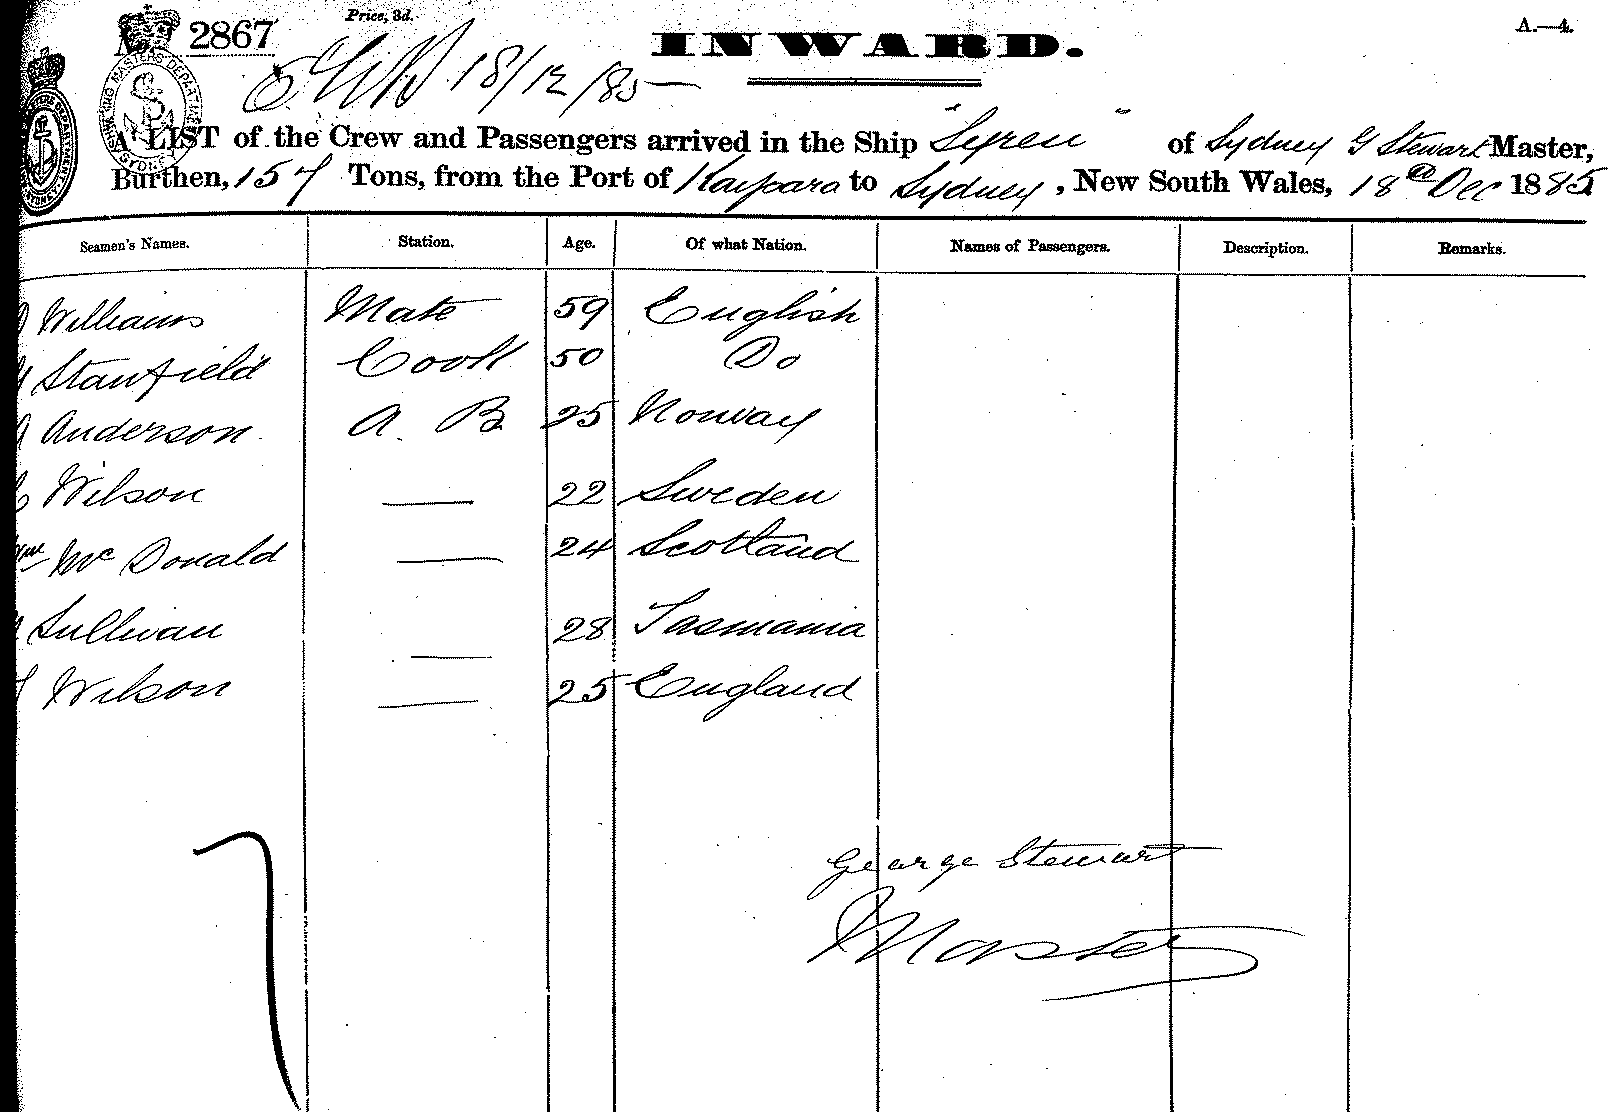 Price, 3d.
A.—4.
No. 2867
INWARD.
18/12/85
A LIST of the Crew and Passengers arrived in the Ship "Syren" of Sydney G Stewart Master,
Burthen, 157 Tons, from the Port of Kaipara to Sydney, New South Wales, 18th Dec 1885
Seamen's Names. Station. Age. Of what Nation. Names of Passengers. Description. Remarks.
Williams Mate 59 English
Stanfield Cook 50 Do
Anderson A. B 25 Norway
Wilson — 22 Sweden
Wm Mc Donald — 24 Scotland
Sullivan — 28 Tasmania
Wilson — 25 England
George Stewart
Master